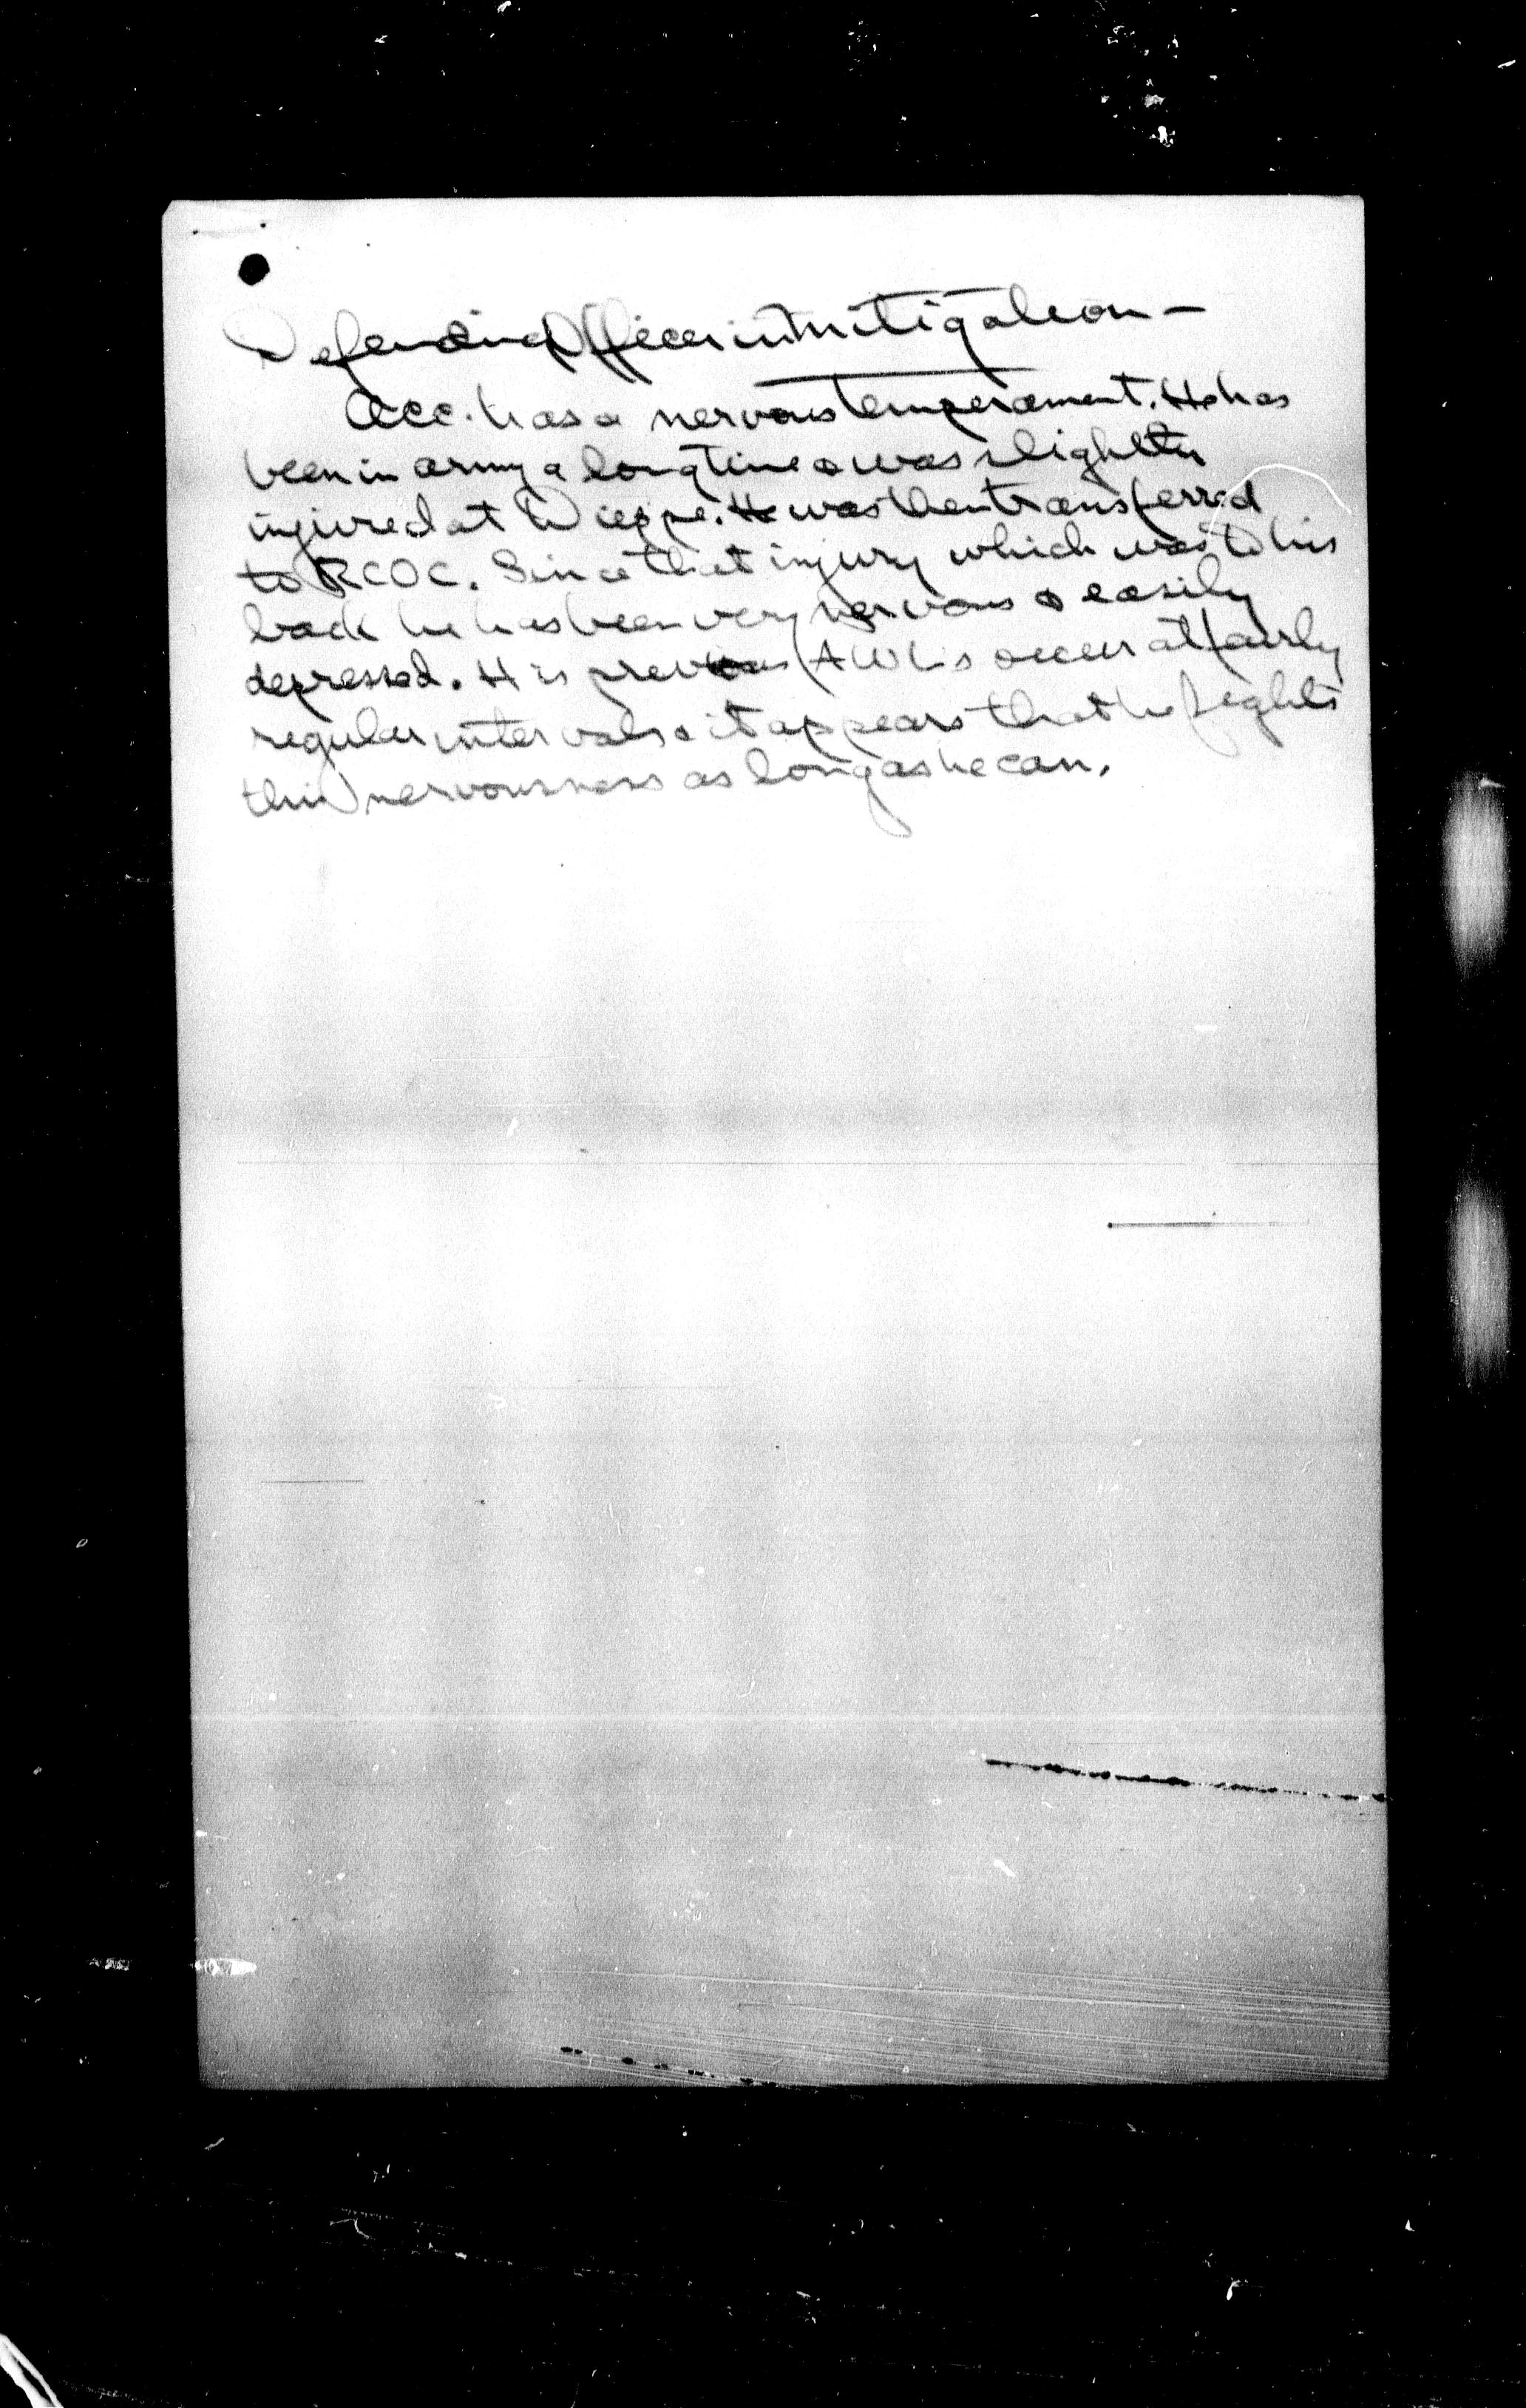 Defending Officer in mitigation —
Acc. has a nervous temperament. He has
been in army a long time & was slightly
injured at Dieppe. He was then transferred
to RCOC. Since that injury which was to his
back he has been very nervous & easily
depressed. His previous AWLs occur at fairly
regular intervals & it appears that he fights
this nervousness as long as he can.